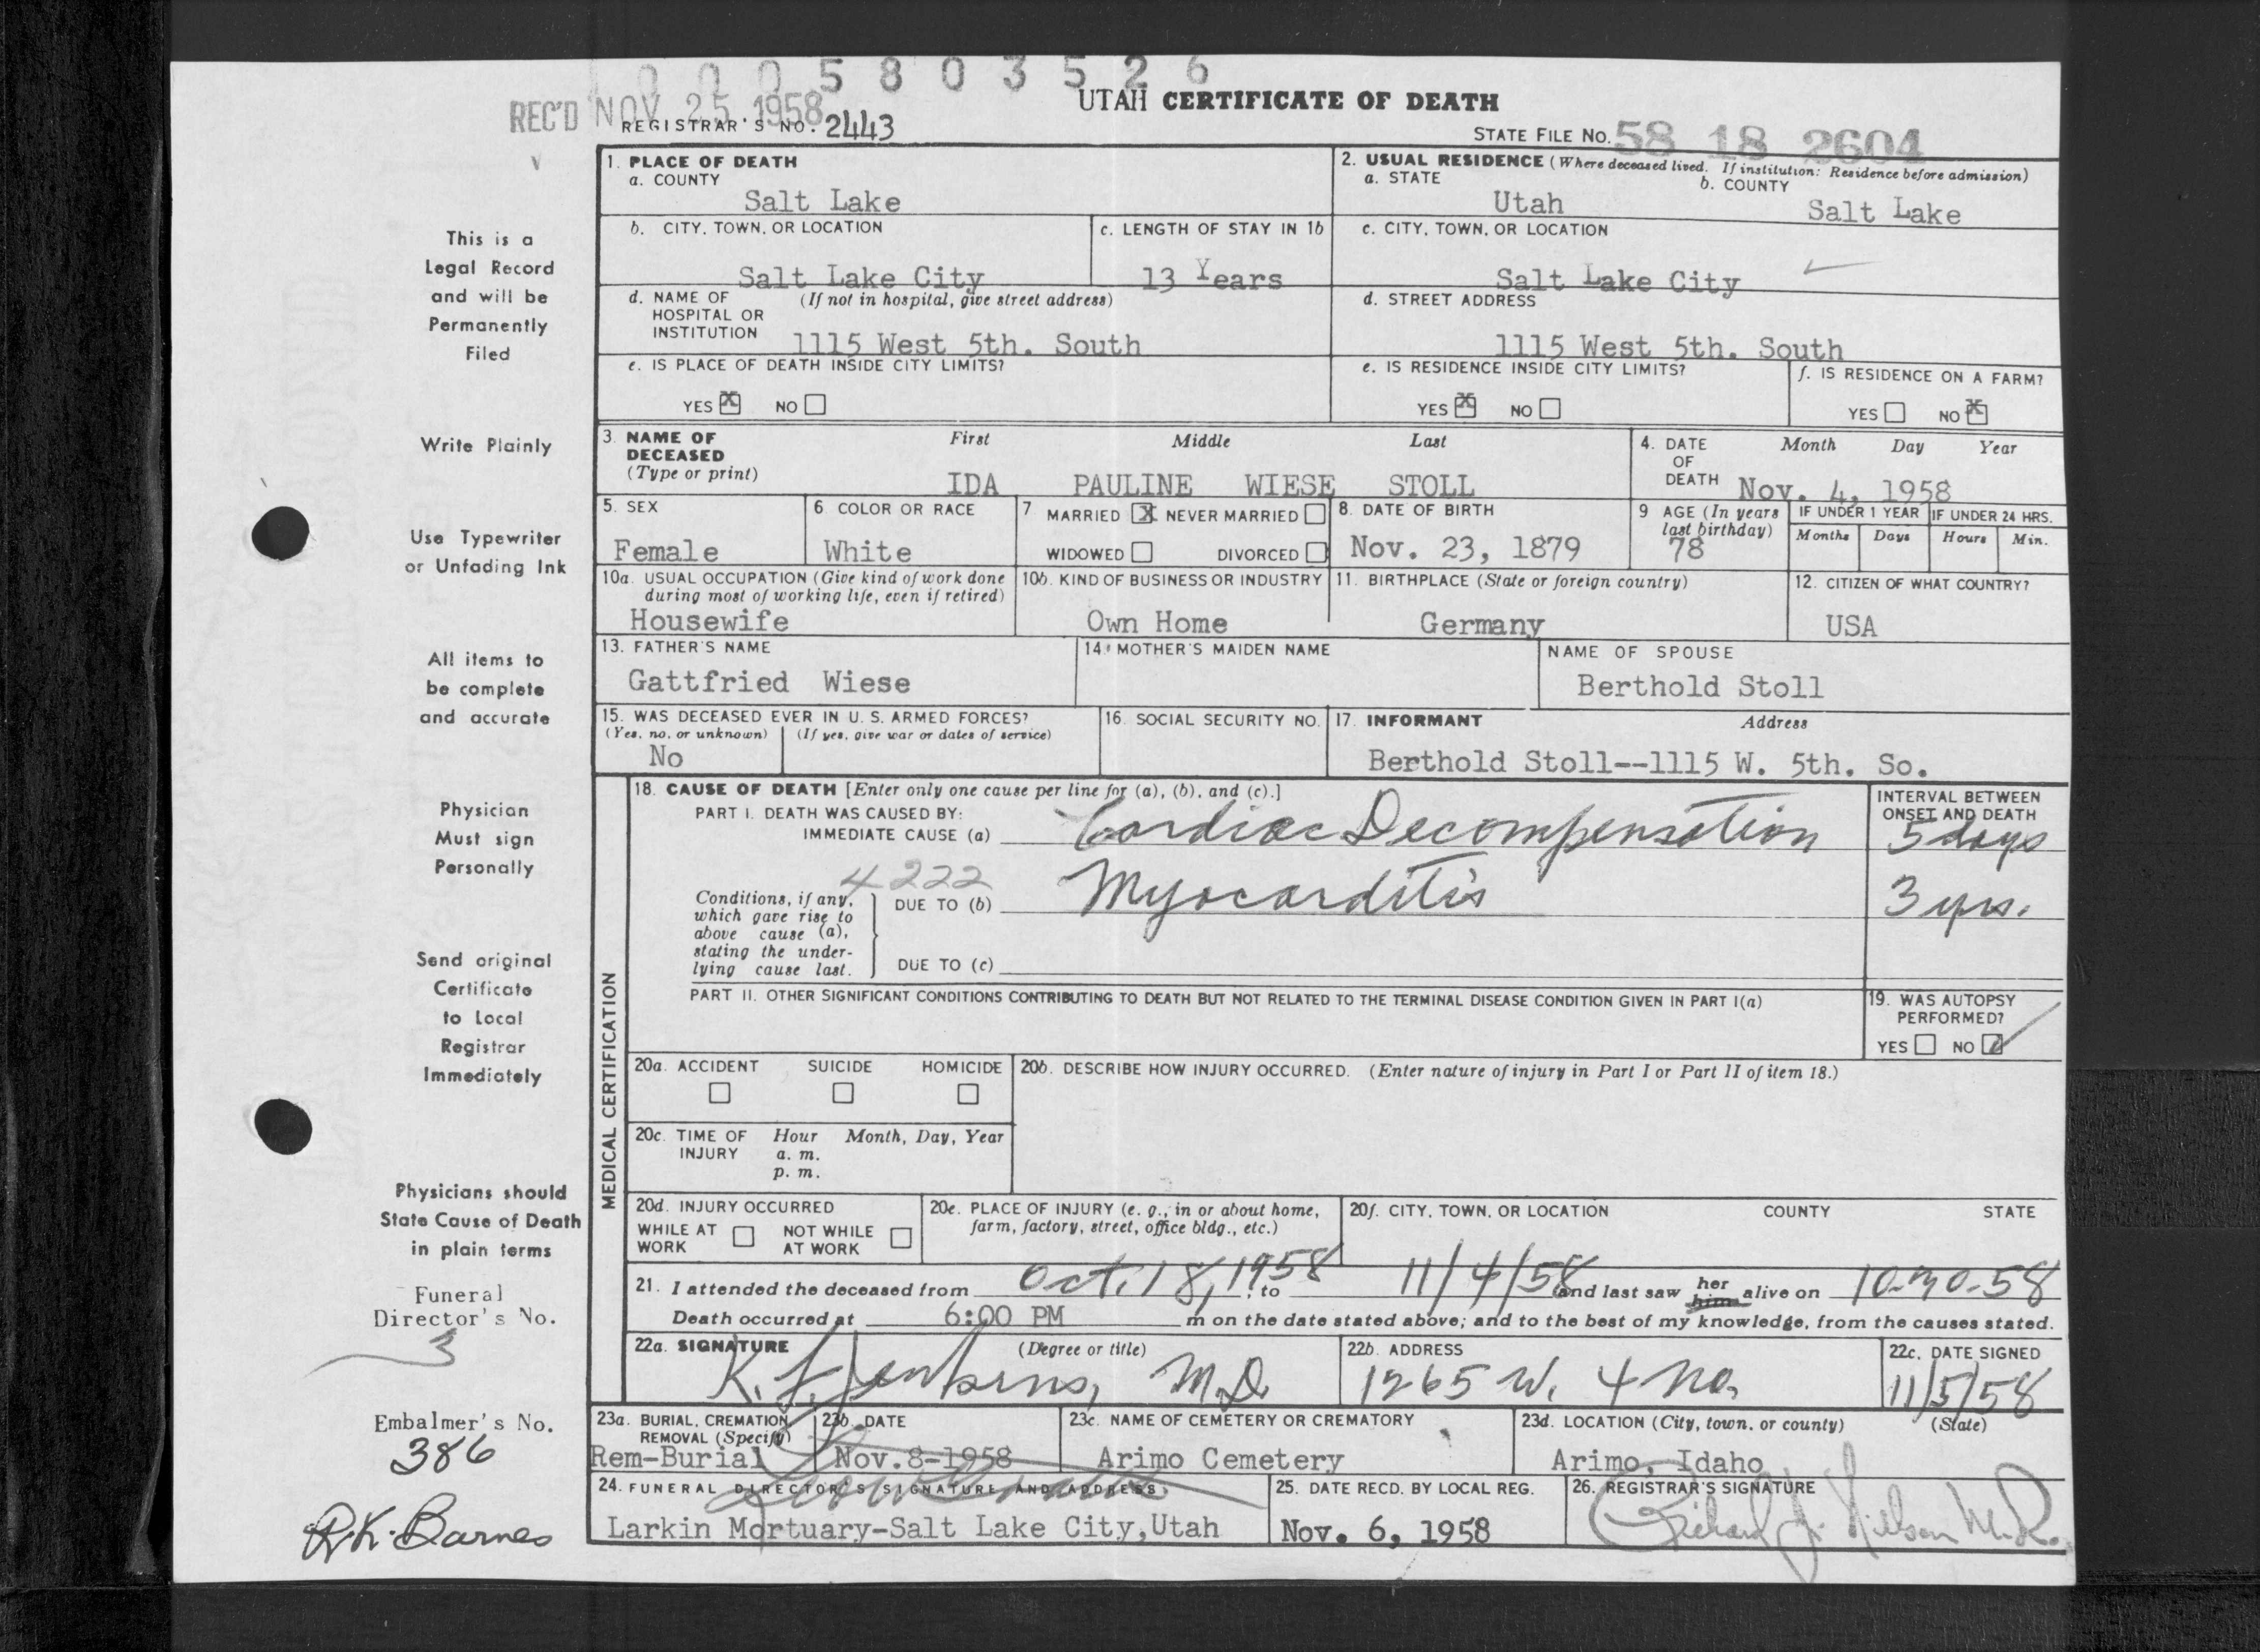 0005803526
REC'D NOV 25 1958
UTAH CERTIFICATE OF DEATH
REGISTRAR'S NO. 2443
STATE FILE NO. 58 18 2604
This is a
Legal Record
and will be
Permanently
Filed
Write Plainly
Use Typewriter
or Unfading Ink
All items to
be complete
and accurate
Physician
Must sign
Personally
Send original
Certificate
to Local
Registrar
Immediately
Physicians should
State Cause of Death
in plain terms
Funeral
Director's No.
3
Embalmer's No.
386
R.K. Barnes
1. PLACE OF DEATH
a. COUNTY
Salt Lake
2. USUAL RESIDENCE (Where deceased lived. If institution: Residence before admission)
a. STATE
Utah
b. COUNTY
Salt Lake
b. CITY, TOWN, OR LOCATION
Salt Lake City
c. LENGTH OF STAY IN 1b
13 Years
c. CITY, TOWN, OR LOCATION
Salt Lake City
d. NAME OF (If not in hospital, give street address)
HOSPITAL OR
INSTITUTION
1115 West 5th. South
d. STREET ADDRESS
1115 West 5th. South
e. IS PLACE OF DEATH INSIDE CITY LIMITS?
YES X NO
e. IS RESIDENCE INSIDE CITY LIMITS?
YES X NO
f. IS RESIDENCE ON A FARM?
YES NO X
3. NAME OF First Middle Last
DECEASED
(Type or print)
IDA PAULINE WIESE STOLL
4. DATE Month Day Year
OF
DEATH Nov. 4, 1958
5. SEX
Female
6 COLOR OR RACE
White
7 MARRIED X NEVER MARRIED
WIDOWED DIVORCED
8. DATE OF BIRTH
Nov. 23, 1879
9 AGE (In years
last birthday)
78
IF UNDER 1 YEAR
Months Days
IF UNDER 24 HRS.
Hours Min.
10a. USUAL OCCUPATION (Give kind of work done
during most of working life, even if retired)
Housewife
10b. KIND OF BUSINESS OR INDUSTRY
Own Home
11. BIRTHPLACE (State or foreign country)
Germany
12. CITIZEN OF WHAT COUNTRY?
USA
13. FATHER'S NAME
Gattfried Wiese
14. MOTHER'S MAIDEN NAME
NAME OF SPOUSE
Berthold Stoll
15. WAS DECEASED EVER IN U. S. ARMED FORCES?
(Yes, no, or unknown) (If yes, give war or dates of service)
No
16. SOCIAL SECURITY NO.
17. INFORMANT Address
Berthold Stoll--1115 W. 5th. So.
MEDICAL CERTIFICATION
18. CAUSE OF DEATH [Enter only one cause per line for (a), (b), and (c).]
PART I. DEATH WAS CAUSED BY:
IMMEDIATE CAUSE (a) Cardiac Decompensation
INTERVAL BETWEEN
ONSET AND DEATH
5 days
4222
Conditions, if any,
which gave rise to
above cause (a),
stating the under-
lying cause last.
DUE TO (b) Myocarditis
3 yrs.
DUE TO (c)
PART II. OTHER SIGNIFICANT CONDITIONS CONTRIBUTING TO DEATH BUT NOT RELATED TO THE TERMINAL DISEASE CONDITION GIVEN IN PART I(a)
19. WAS AUTOPSY
PERFORMED?
YES NO
20a. ACCIDENT SUICIDE HOMICIDE
20b. DESCRIBE HOW INJURY OCCURRED. (Enter nature of injury in Part I or Part II of item 18.)
20c. TIME OF Hour Month, Day, Year
INJURY a. m.
p. m.
20d. INJURY OCCURRED
WHILE AT NOT WHILE
WORK AT WORK
20e. PLACE OF INJURY (e. g., in or about home,
farm, factory, street, office bldg., etc.)
20f. CITY, TOWN, OR LOCATION COUNTY STATE
21. I attended the deceased from Oct. 18, 1958, to 11/4/58 and last saw her him alive on 10-30-58
Death occurred at 6:00 PM m on the date stated above; and to the best of my knowledge, from the causes stated.
22a. SIGNATURE (Degree or title)
Jenkins, M.D.
22b. ADDRESS
1265 W. 4 No.
22c. DATE SIGNED
11/5/58
23a. BURIAL, CREMATION,
REMOVAL (Specify)
Rem-Burial
23b. DATE
Nov.8-1958
23c. NAME OF CEMETERY OR CREMATORY
Arimo Cemetery
23d. LOCATION (City, town, or county) (State)
Arimo, Idaho
24. FUNERAL DIRECTOR'S SIGNATURE AND ADDRESS
Larkin Mortuary-Salt Lake City,Utah
25. DATE RECD. BY LOCAL REG.
Nov. 6, 1958
26. REGISTRAR'S SIGNATURE
Richard J. Nielson M.D.